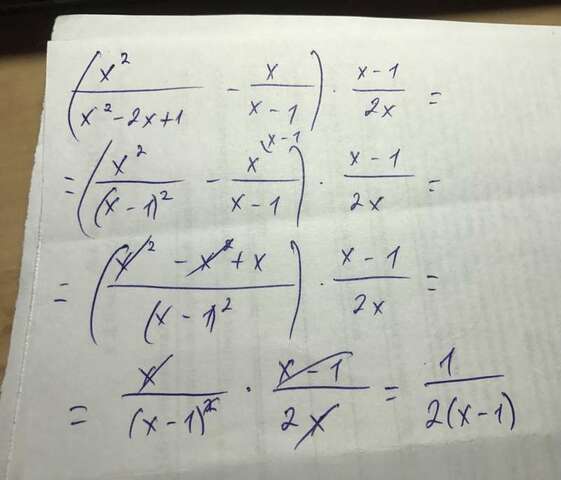 (x²/(x²-2x+1) - x/(x-1)) · (x-1)/(2x) =
= (x²/(x-1)² - x^(x-1)/(x-1)) · (x-1)/(2x) =
= ((x² - x² + x)/(x-1)²) · (x-1)/(2x) =
= x/(x-1)² · (x-1)/(2x) = 1/(2(x-1))